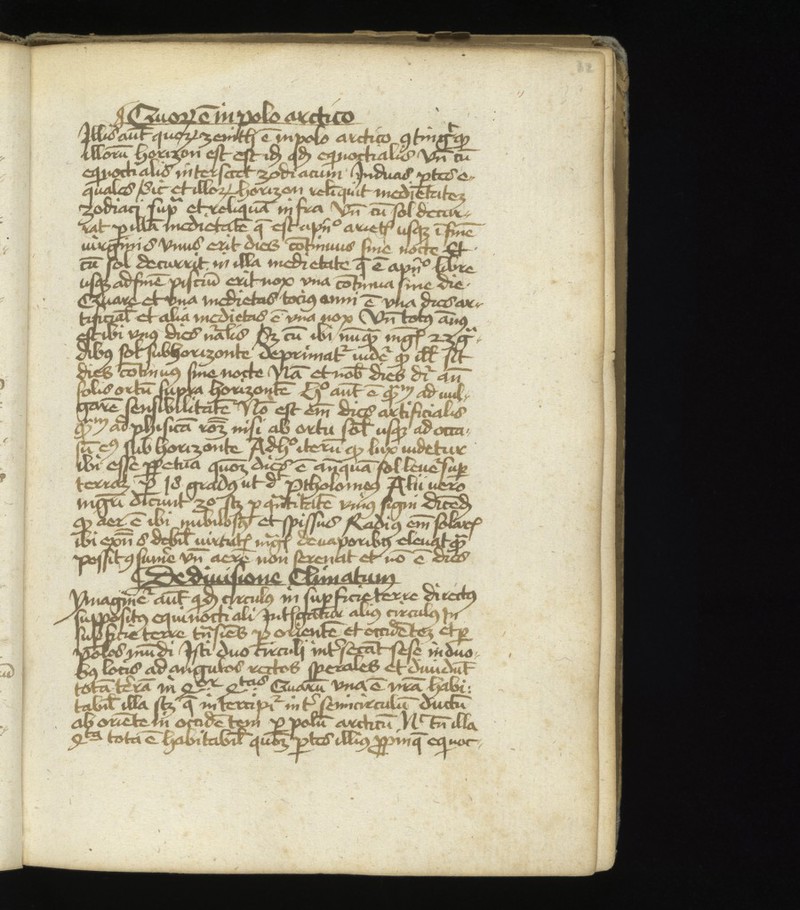 32
Quorum est in polo arctico
Illis aut quorum zenith est in polo arctico contingit quod
illorum horizon est est idem quod equinoctialis Vnde cum
equoctialis intersecet zodiacum In duas partes e-
quales sic et illorum horizon relinquit medietatem
zodiaci supra et reliquam infra Vnde cum sol decur-
rat per illam medietatem que est a principio arietis usque in finem
uirginis vnus erit dies continuus sine nocte Et
cum sol decurrit in illa medietate que est a principio libre
usque ad finem piscium erit nox vna continua sine die
Quare et vna medietas tocius anni est vna dies ar-
tificialis et alia medietas est vna nox Vnde totus annus
est ibi vnus dies naturalis Sed cum ibi nunquam magis 23 gra-
dibus sol sub horizonte deprimatur videtur quod illis sit
dies continuus sine nocte Nam et nobis dies dicitur ante
solis ortum supra horizontem Hoc autem est quantum ad vul-
garem sensibilitatem Non est enim dies artificialis
quantum ad phisicam rationem nisi ab ortu solis usque ad occa-
sum eius sub horizonte Ad hoc iterum quod lux uidetur
ibi esse perpetua quoniam dies est antequam sol leuetur super
terram per 18 gradus ut dicit Ptholomeus Alii vero
magistri dicunt 30 scilicet per quantitatem vnius signi dicendum
quod aer est ibi nubilosus et spissus Radius enim solaris
ibi existens debilis virtutis magis de vaporibus eleuat quam
possit consumere Vnde aerem non serenat et non est dies
De diuisione Climatum
Ymaginetur autem quidam circulus in superficie terre directe
suppositus equinoctiali Intelligatur alius circulus In
superficie terre transiens per orientem et occidentem et per
polos mundi Isti duo circuli intersecant sese in duo-
bus locis ad angulos rectos sperales et diuidunt
totam terram in 4or 4tas Quarum vna est nostra habi-
tabilis illa scilicet que intercipitur inter semicirculum ductum
ab oriente in occidentem per polum arcticum Nec tamen illa
4ta tota est habitabilis quoniam partes illius propinque equoc-